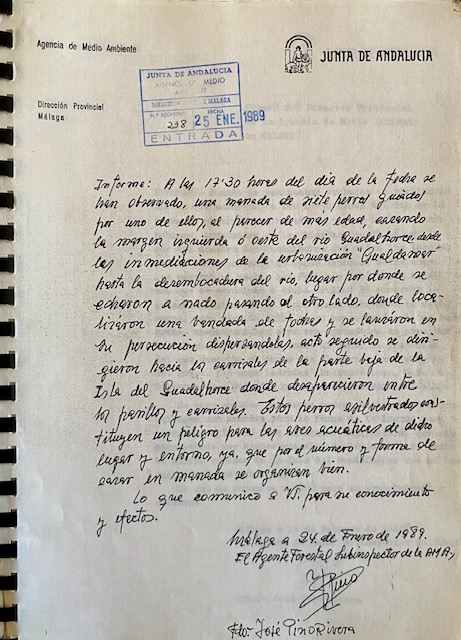 Agencia de Medio Ambiente
JUNTA DE ANDALUCIA
Dirección Provincial
Málaga
JUNTA DE ANDALUCIA
AGENCIA MEDIO
DIRECCION MALAGA
N.º REGISTRO FECHA
238 25 ENE. 1989
ENTRADA
Informe: A las 17'30 horas del dia de la fecha se
han observado, una manada de siete perros guiados
por uno de ellos, al parecer de más edad, cazando
la margen izquierda ó oeste del rio Guadalhorce desde
las inmediaciones de la urbanización "Gualdamar"
hasta la desembocadura del rio, lugar por donde se
echaron a nado pasando al otro lado, donde loca-
lizaron una bandada de fochas y se lanzaron en
su persecución dispersandolas, acto seguido se diri-
gieron hacia los carrizales de la parte baja de la
Isla del Guadalhorce donde desaparecieron entre
los pasillos y carrizales. Estos perros asilvestrados cons-
tituyen un peligro para las aves acuáticas de dicho
lugar y entorno, ya, que por el número y forma de
cazar en manada se organizan bien.
Lo que comunico a VI. para su conocimiento
y efectos.
Málaga a 24 de Enero de 1989.
El Agente Forestal Subinspector de la AMA,
Fdo. José Pino Rivera